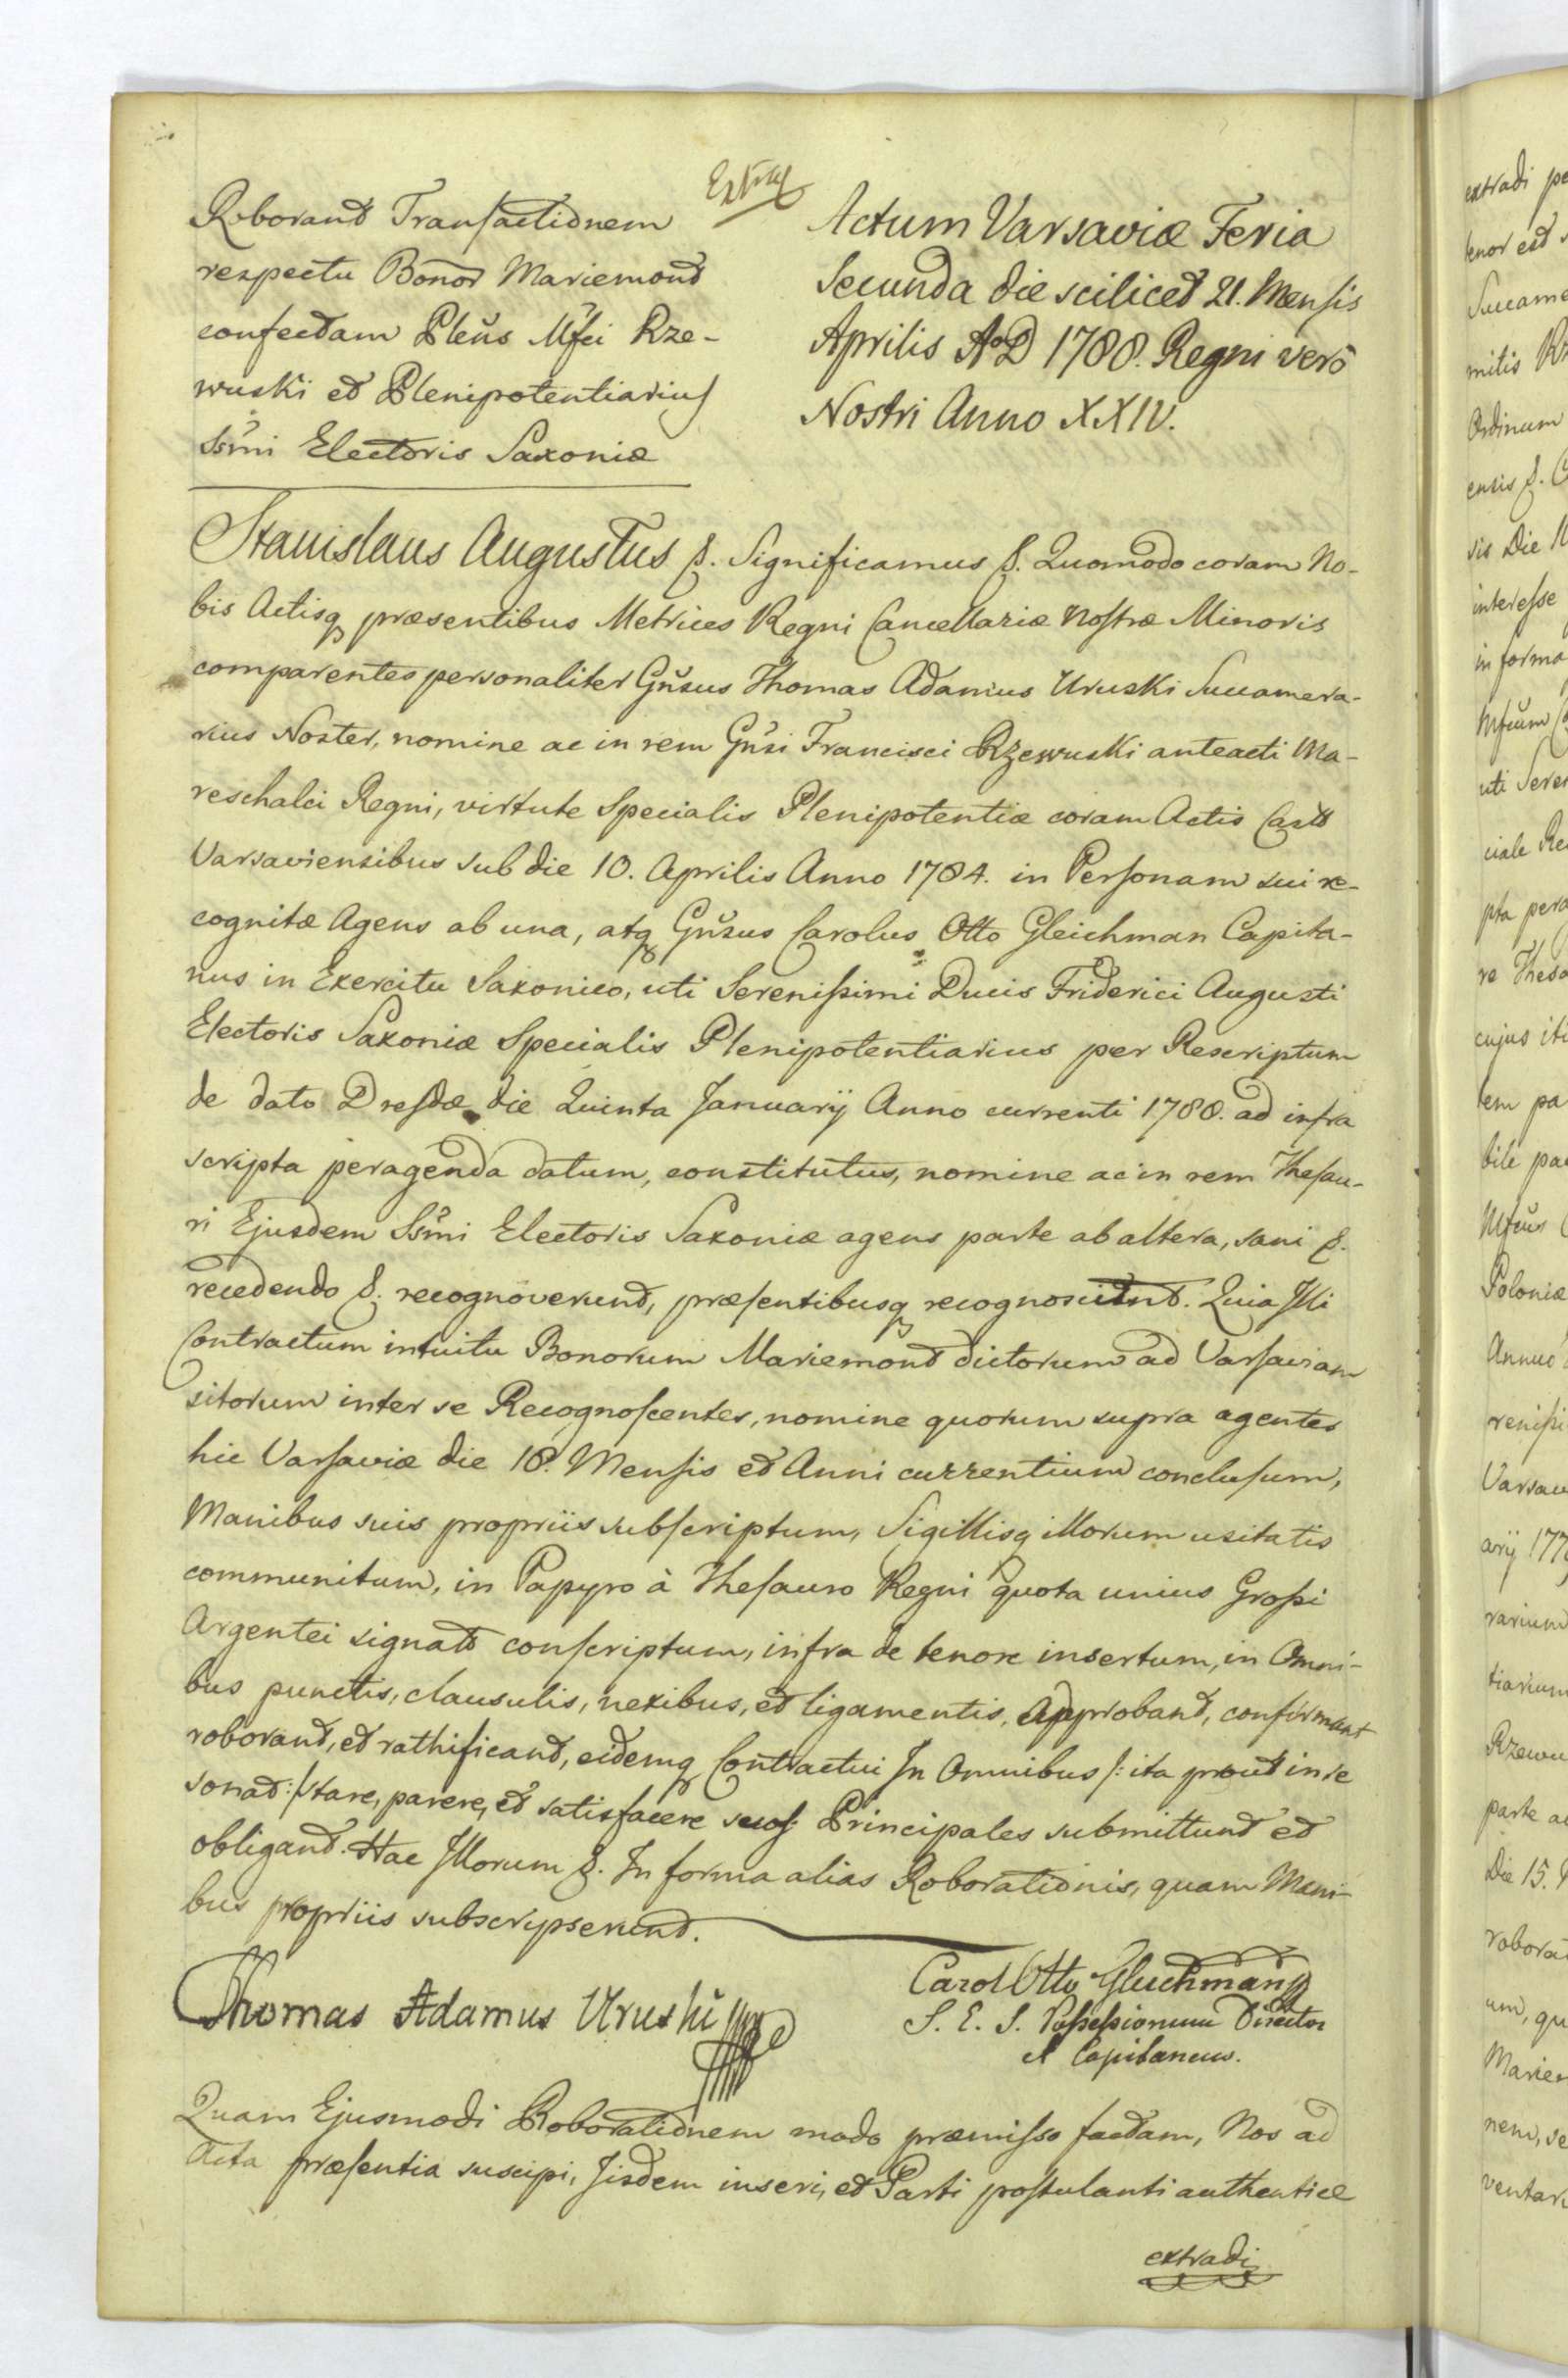 Extrad
Roborant Transactionem
respectu Bonor Mariemont
confectam Plenus Mfci Rze-
wuski et Plenipotentiarius
Ssmi Electoris Saxoniæ
Actum Varsaviæ Feria
Secunda die scilicet 21. Mensis
Aprilis A°D 1788. Regni verò
Nostri Anno XXIV.
Stanislaus Augustus &. Significamus &. Quomodo coram No-
bis Actisq præsentibus Metrices Regni Cancellariæ Nostræ Minoris
comparentes personaliter Gnsus Thomas Adamus Uruski Succamera-
rius Noster, nomine ac in rem Gnsi Francisci Rzewuski anteacti Ma-
reschalci Regni, virtute Specialis Plenipotentiæ coram Actis Castr
Varsaviensibus sub die 10. Aprilis Anno 1784. in Personam sui re-
cognitæ Agens ab una, atq Gnsus Carolus Otto Gleichman Capita-
nus in Exercitu Saxonico, uti Serenissimi Ducis Friderici Augusti
Electoris Saxoniæ Specialis Plenipotentiarius per Rescriptum
de dato Dresdæ die Quinta Januarij Anno currenti 1788. ad infra
scripta peragenda datum, constitutus, nomine ac in rem Thesau-
ri Ejusdem Ssmi Electoris Saxoniæ agens parte ab altera, sani &.
recedendo &. recognoverunt, præsentibusq recognoscunt. Quia Illi
Contractum intuitu Bonorum Mariemont dictorum ad Varsaviam
sitorum inter se Recognoscentes, nomine quorum supra agentes
hic Varsaviæ die 18. Mensis et Anni currentium conclusum,
Manibus suis propriis subscriptum, Sigillisq illorum usitatis
communitum, in Papyro à Thesauro Regni quota unius Grossi
Argentei signato conscriptum, infra de tenore insertum, in Omni-
bus punctis, clausulis, nexibus, et ligamentis, Approbant, confirmant
roborant, et rathificant, eidemq Contractui In Omnibus /: ita prout in se
sonat :/ stare, parere, et satisfacere suos Principales submittunt et
obligant. Hac Illorum &. In forma alias Roborationis, quam Mani-
bus propriis subscripserunt.
Thomas Adamus Uruski
Carol Otto Gleichmann
S. E. S. Possessionum Director
et Capitaneus.
Quam Ejusmodi Roborationem modo præmisso factam, Nos ad
Acta præsentia suscipi, Iisdem inseri, et Parti postulanti authentice
extradi